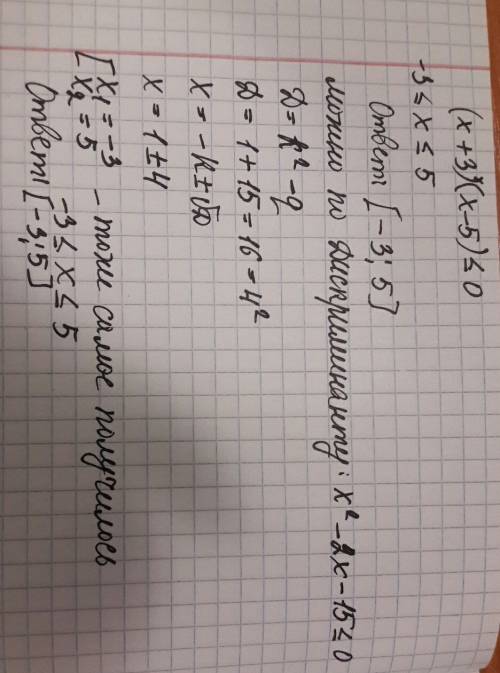 (x+3)*(x-5)≤0
-3≤x≤5
Ответ [-3;5]
можно по дискриминанту: x²-2x-15≤0
D=k²-q
D=1+15=16=4²
x=-k±√D
x=1±4
[x₁=-3
x₂=5 - тоже самое получилось
-3≤x≤5
Ответ [-3;5]